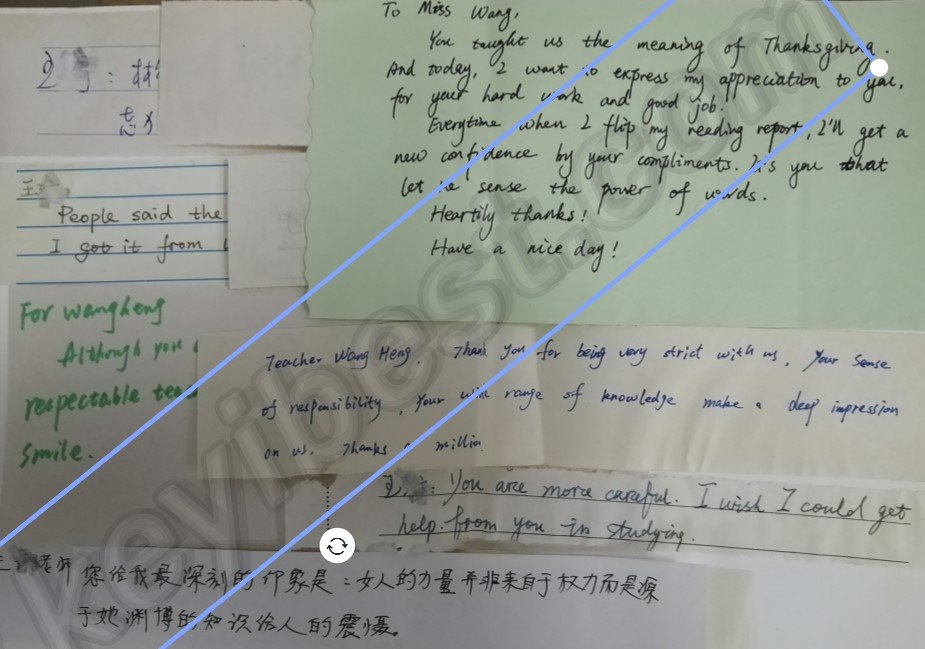 To Miss Wang,
You taught us the meaning of Thanksgiving.
And today, I want to express my appreciation to you,
for your hard work and good job.
Everytime when I flip my reading report, I'll get a
new confidence by your compliments. It's you that
let me sense the power of words.
Heartily thanks!
Have a nice day!
王
People said the
I got it from
For wangheng
Although you
respectable
smile.
Teacher Wang Heng, Thank you for being very strict with us. Your sense
of responsibility, Your wide range of knowledge make a deep impression
on us. Thanks a million.
You are more careful. I wish I could get
help from you in studying.
王 老师 您给我最深刻的印象是：女人的力量并非来自于权力而是源
于她渊博的知识给人的震慑。
keyibest.com